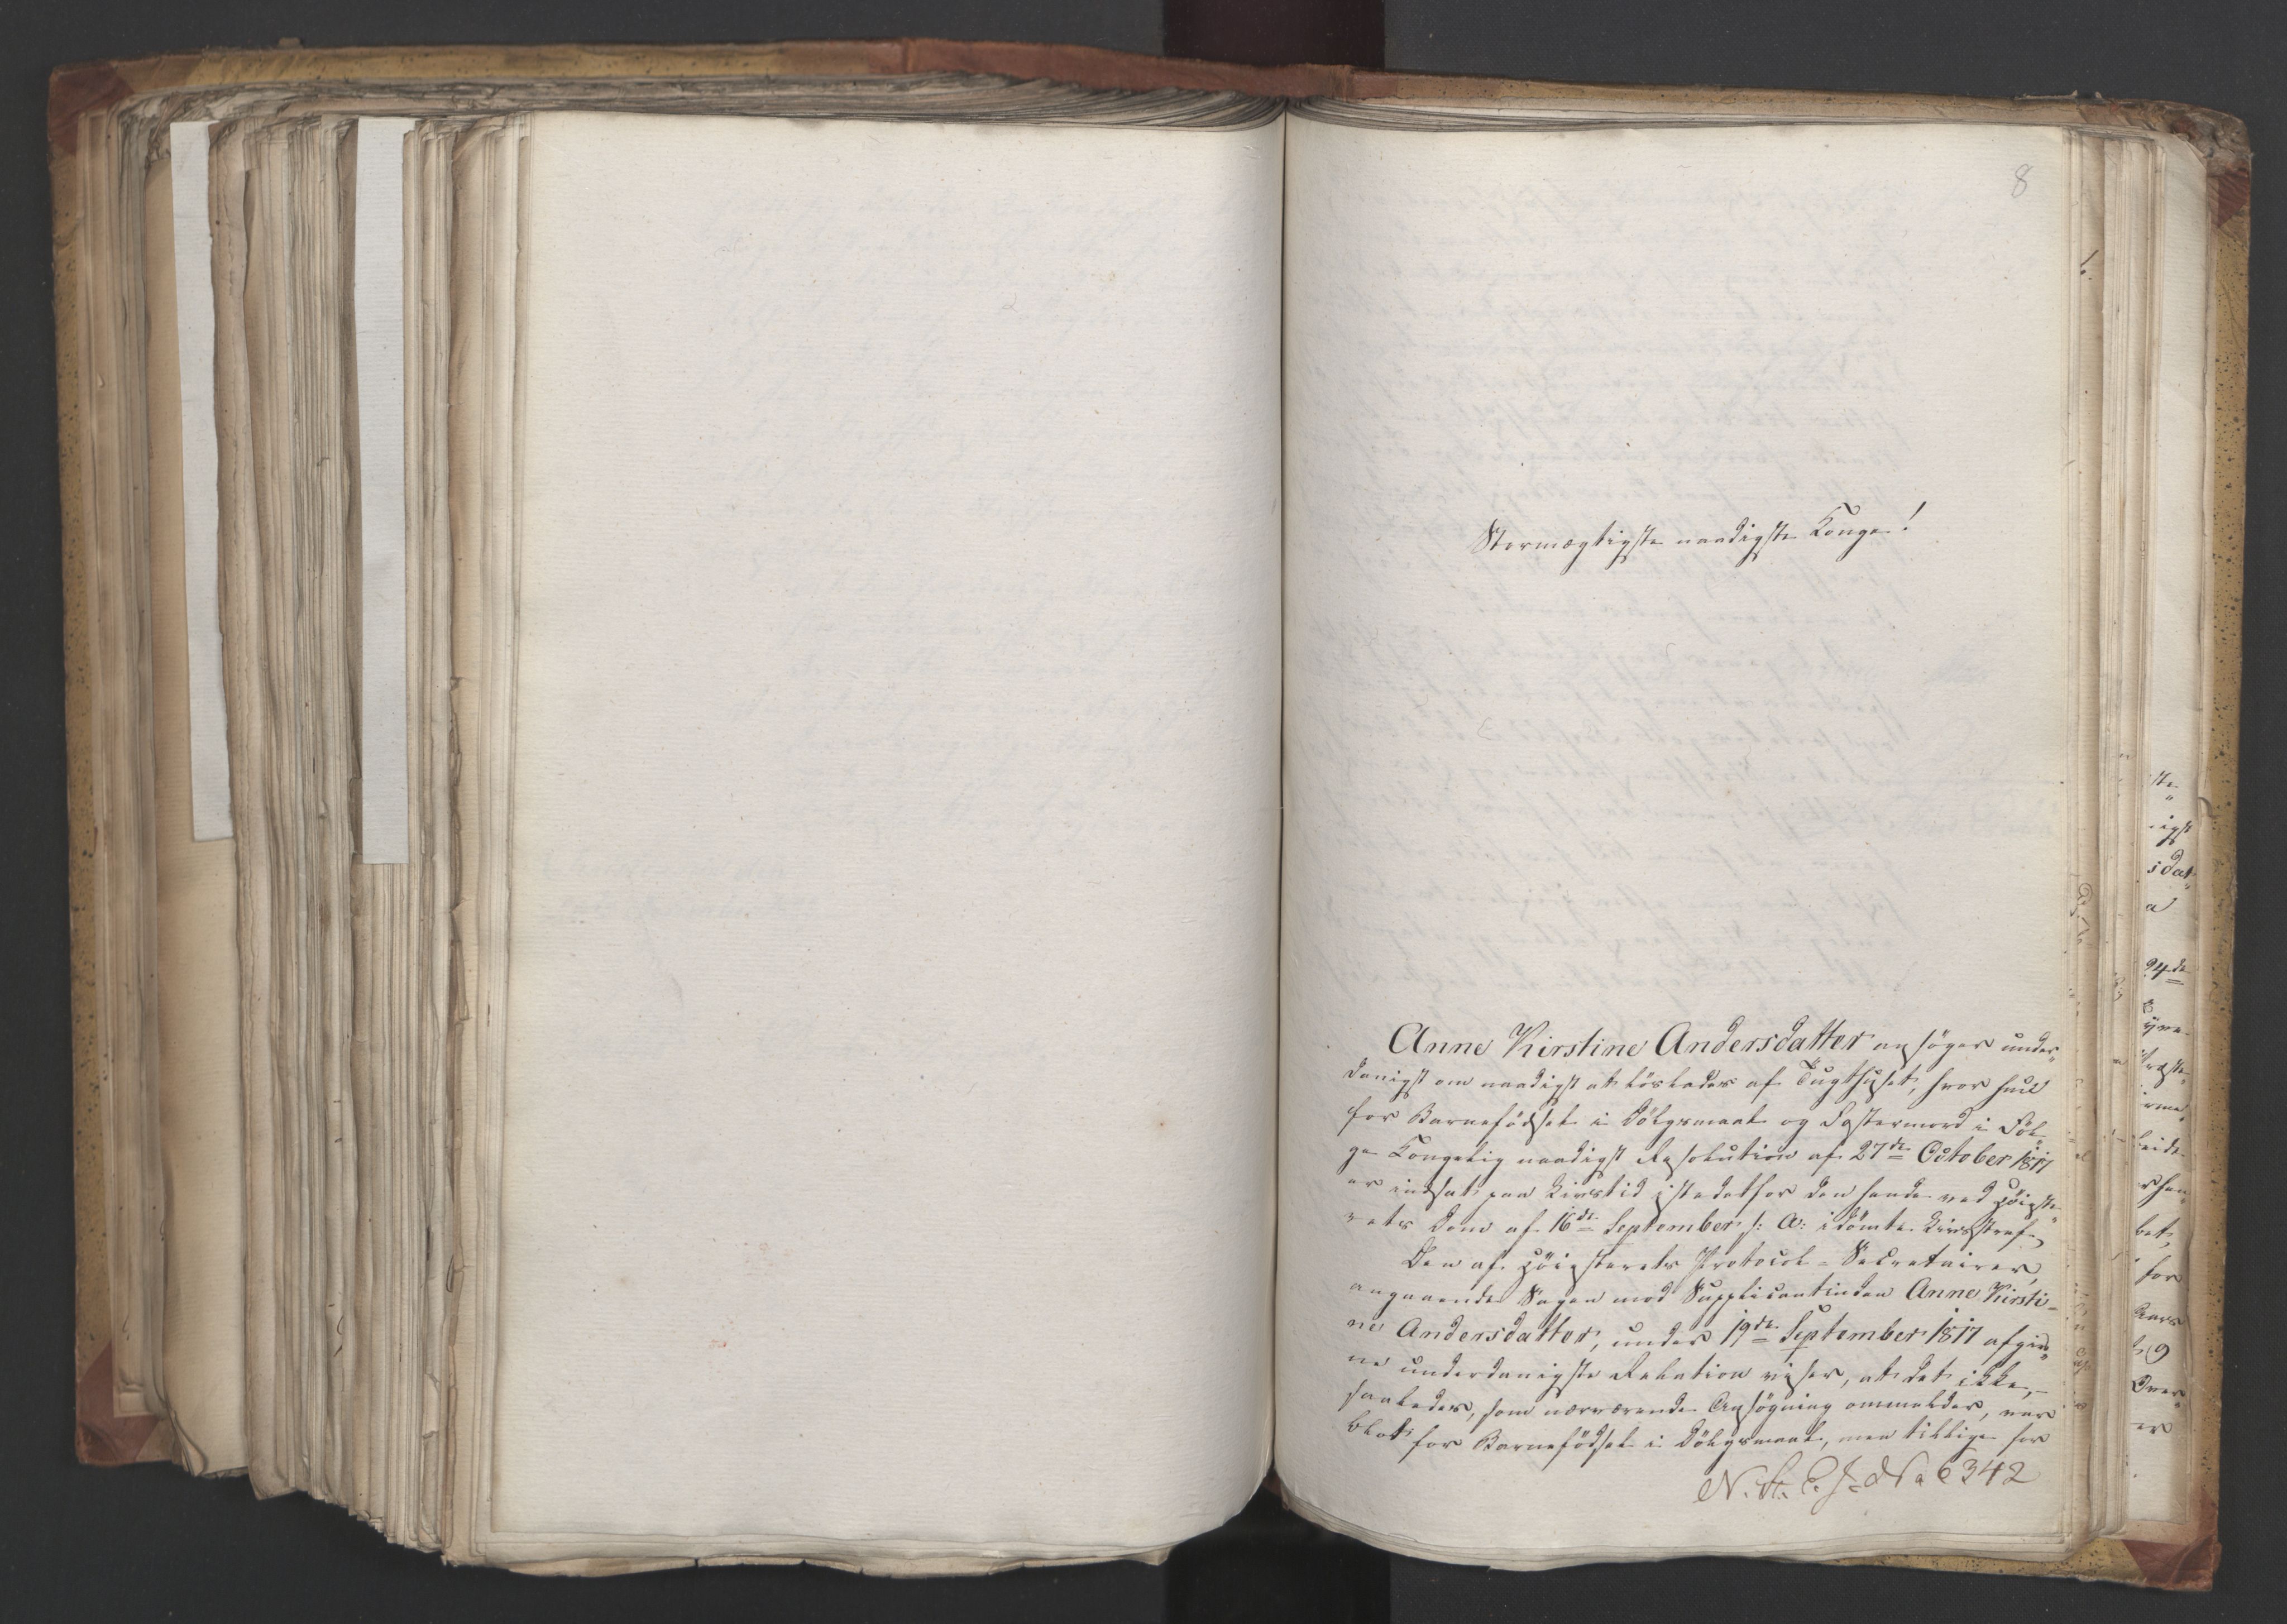 8
Stormægtigste naadigste Konge!
Anne Kirstine Andersdatter ansøger under„
danigst om naadigst at løslades af Tugthuset, hvor hun
for Barnefødsel i Dølgsmaal og Fostermord i Føl„
ge Kongelig naadigst Resolution af 27de October 1817
er indsat paa Livstid istedetfor den hende ved Høieste„
rets Dom af 16de September s: A: idømte Livsstraf.
Den af Høiesterets Protocol=Secretairer,
angaaende Sagen mod Supplicantinden Anne Kirsti=
ne Andersdatter, under 19de September 1817 afgiv„
ne underdanigste Relation viser, at det ikke,
saaledes, som nærværende Ansøgning ommelder, var
blot for Barnefødsel i Dølgsmaal, men tillige for
No 6342